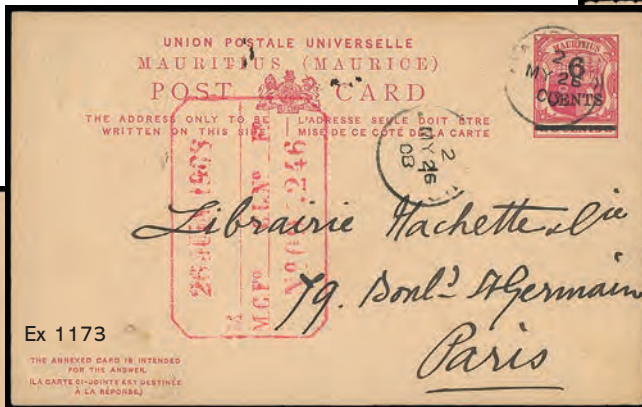 UNION POSTALE UNIVERSELLE
MAURITIUS (MAURICE)
POST CARD
THE ADDRESS ONLY TO BE WRITTEN ON THIS SIDE
L'ADRESSE SEULE DOIT ÊTRE MISE DE CE CÔTÉ DE LA CARTE
MAURITIUS
6
CENTS
2
MY 26
2
MY 26
08
Librairie Hachette & Cie
79. Boul.d St Germain
Paris
Ex 1173
THE ANNEXED CARD IS INTENDED
FOR THE ANSWER.
(LA CARTE CI-JOINTE EST DESTINÉE
À LA RÉPONSE.)